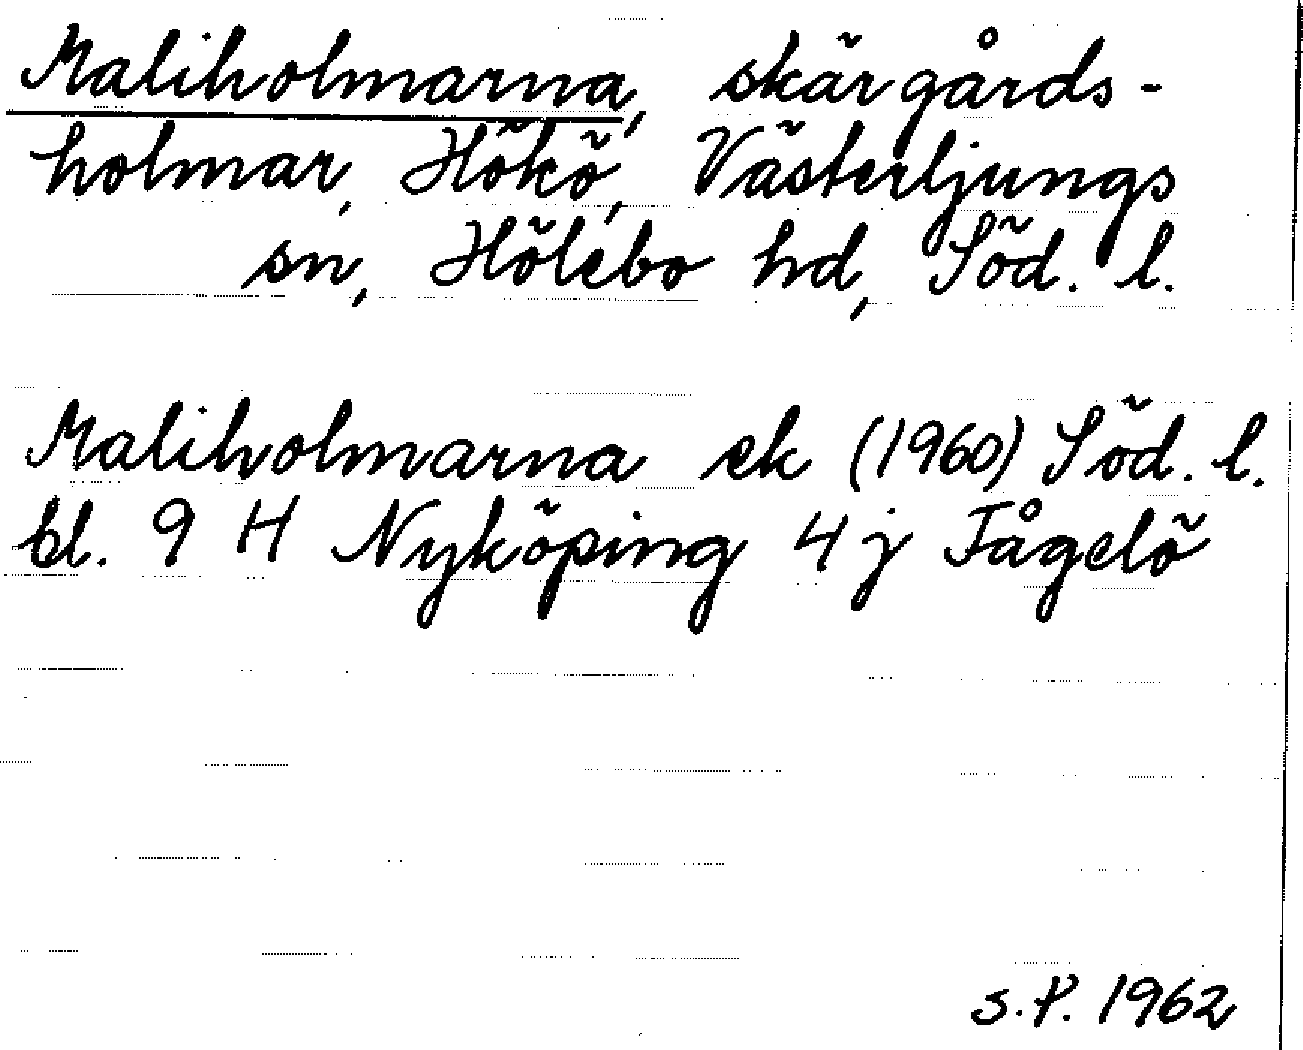 Maliholmarna, skärgårds-
holmar, Hökö, Västerljungs
sn, Hölebo hd, Söd. l.
Maliholmarna ek (1960) Söd. l.
bl. 9 H Nyköping 4 j Fågelö
S.P. 1962